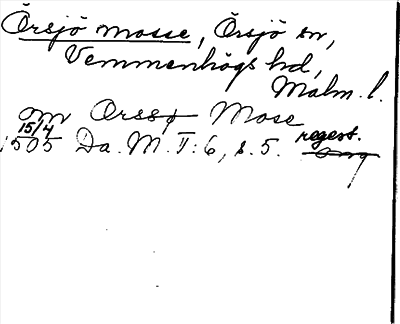 Örsjö mosse, Örsjö sn,
Vemmenhögs hd,
Malm. l.
Orssø Mose
15/4
1505 Da. M. II: 6, s. 5. regest.